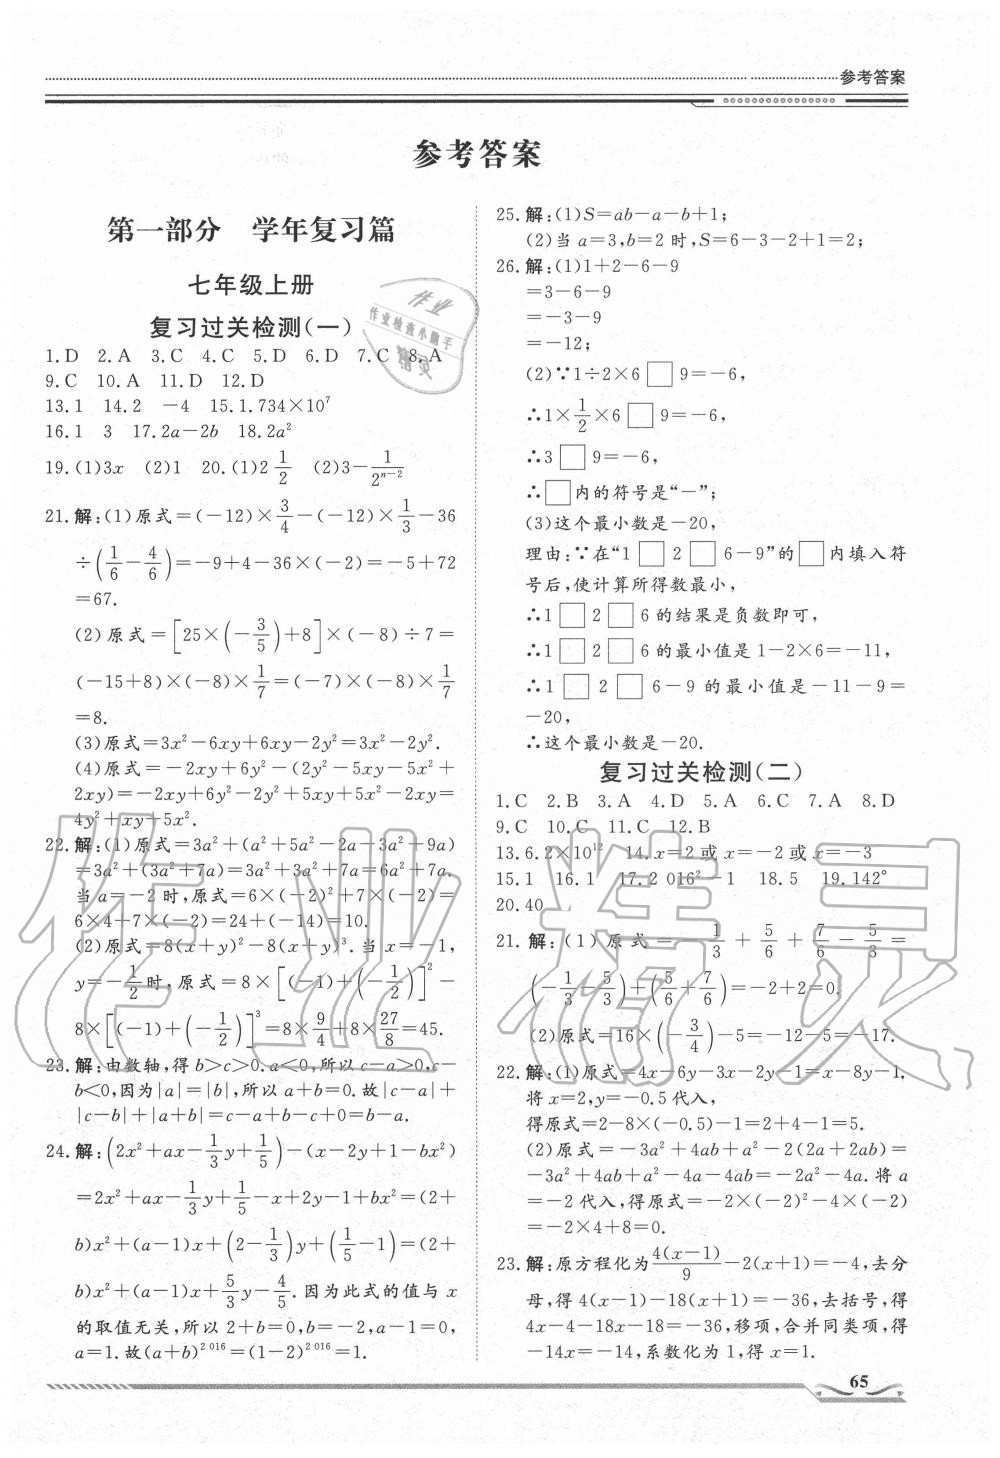 参考答案
参考答案
第一部分 学年复习篇
七年级上册
复习过关检测(一)
1.D 2.A 3.C 4.C 5.D 6.D 7.C 8.A
9.C 10.A 11.D 12.D
13.1 14.2 -4 15.1.734×10⁷
16.1 3 17.2a-2b 18.2a²
19.(1)3x (2)1 20.(1)2 1/2 (2)3-1/2ⁿ⁻²
21.解:(1)原式=(-12)×3/4-(-12)×1/3-36
÷(1/6-4/6)=-9+4-36×(-2)=-5+72
=67.
(2)原式=[25×(-3/5)+8]×(-8)÷7=
(-15+8)×(-8)×1/7=(-7)×(-8)×1/7
=8.
(3)原式=3x²-6xy+6xy-2y²=3x²-2y².
(4)原式=-2xy+6y²-(2y²-5xy-5x²+
2xy)=-2xy+6y²-2y²+5xy+5x²-2xy=
4y²+xy+5x².
22.解:(1)原式=3a²+(a²+5a²-2a-3a²+9a)
=3a²+(3a²+7a)=3a²+3a²+7a=6a²+7a.
当a=-2时,原式=6×(-2)²+7×(-2)=
6×4+7×(-2)=24+(-14)=10.
(2)原式=8(x+y)²-8(x+y)³.当x=-1,
y=-1/2时,原式=8×[(-1)+(-1/2)]²-
8×[(-1)+(-1/2)]³=8×9/4+8×27/8=45.
23.解:由数轴,得b>c>0.a<0,所以c-a>0,c-
b<0,因为|a|=|b|,所以a+b=0.故|c-a|+
|c-b|+|a+b|=c-a+b-c+0=b-a.
24.解:(2x²+ax-1/3y+1/5)-(x-2y+1-bx²)
=2x²+ax-1/3y+1/5-x+2y-1+bx²=(2+
b)x²+(a-1)x+(2-1/3)y+(1/5-1)=(2+
b)x²+(a-1)x+5/3y-4/5.因为此式的值与x
的取值无关,所以2+b=0,b=-2,a-1=0,
a=1.故(a+b)²⁰¹⁶=(1-2)²⁰¹⁶=1.
25.解:(1)S=ab-a-b+1;
(2)当a=3,b=2时,S=6-3-2+1=2;
26.解:(1)1+2-6-9
=3-6-9
=-3-9
=-12;
(2)∵1÷2×6□9=-6,
∴1×1/2×6□9=-6,
∴3□9=-6,
∴□内的符号是“-”;
(3)这个最小数是-20,
理由:∵在“1□2□6-9”的□内填入符
号后,使计算所得数最小,
∴1□2□6的结果是负数即可,
∴1□2□6的最小值是1-2×6=-11,
∴1□2□6-9的最小值是-11-9=
-20,
∴这个最小数是-20.
复习过关检测(二)
1.C 2.B 3.A 4.D 5.A 6.C 7.A 8.D
9.C 10.C 11.C 12.B
13.6.2×10¹² 14.x=2或x=-2或x=-3
15.1 16.1 17.2 016²-1 18.5 19.142°
20.40
21.解:(1)原式=-1/3+5/6+7/6-5/3=
(-1/3-5/3)+(5/6+7/6)=-2+2=0.
(2)原式=16×(-3/4)-5=-12-5=-17.
22.解:(1)原式=4x-6y-3x-2y-1=x-8y-1,
将x=2,y=-0.5代入,
得原式=2-8×(-0.5)-1=2+4-1=5.
(2)原式=-3a²+4ab+a²-2(2a+2ab)=
-3a²+4ab+a²-4a-4ab=-2a²-4a.将a
=-2代入,得原式=-2×(-2)²-4×(-2)=
-2×4+8=0.
23.解:原方程化为4(x-1)/9-2(x+1)=-4,去分
母,得4(x-1)-18(x+1)=-36,去括号,得
4x-4-18x-18=-36,移项,合并同类项,得
-14x=-14,系数化为1,得x=1.
65
作业
作业检查小助手
精灵
作业精灵